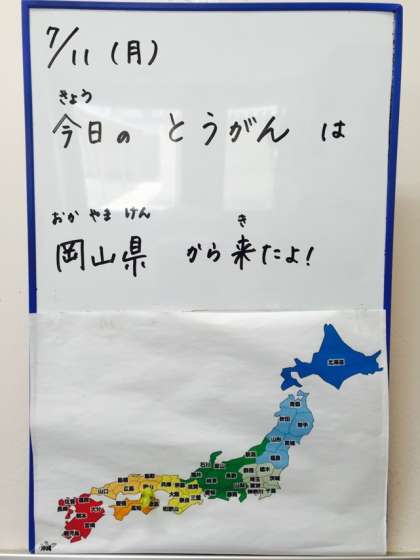 7/11（月）
きょう
今日の とうがん は
おか やま けん き
岡山県 から来たよ！
北海道
青森
秋田
岩手
山形
宮城
福島
新潟
石川
富山
長野
栃木
茨城
埼玉
千葉
神奈川
静岡
大阪
奈良
和歌山
兵庫
鳥取
島根
岡山
広島
山口
愛媛
高知
福岡
佐賀
長崎
大分
熊本
宮崎
鹿児島
沖縄